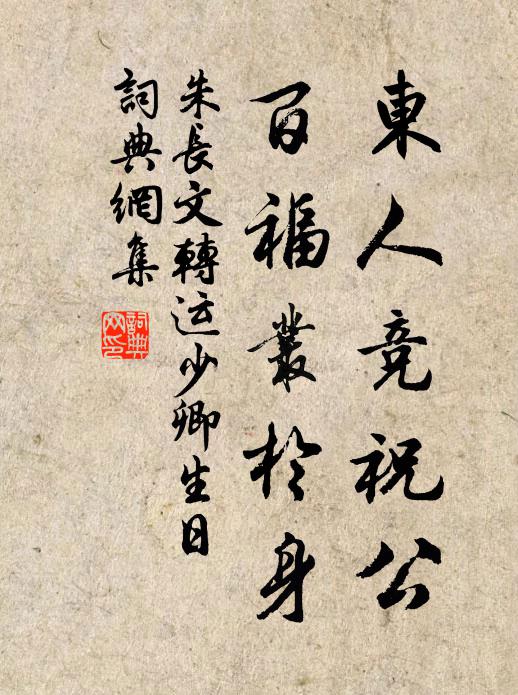 東人竞祝公
百福叢於身
朱長文轉运少卿生日
詞典網集
詞典网印